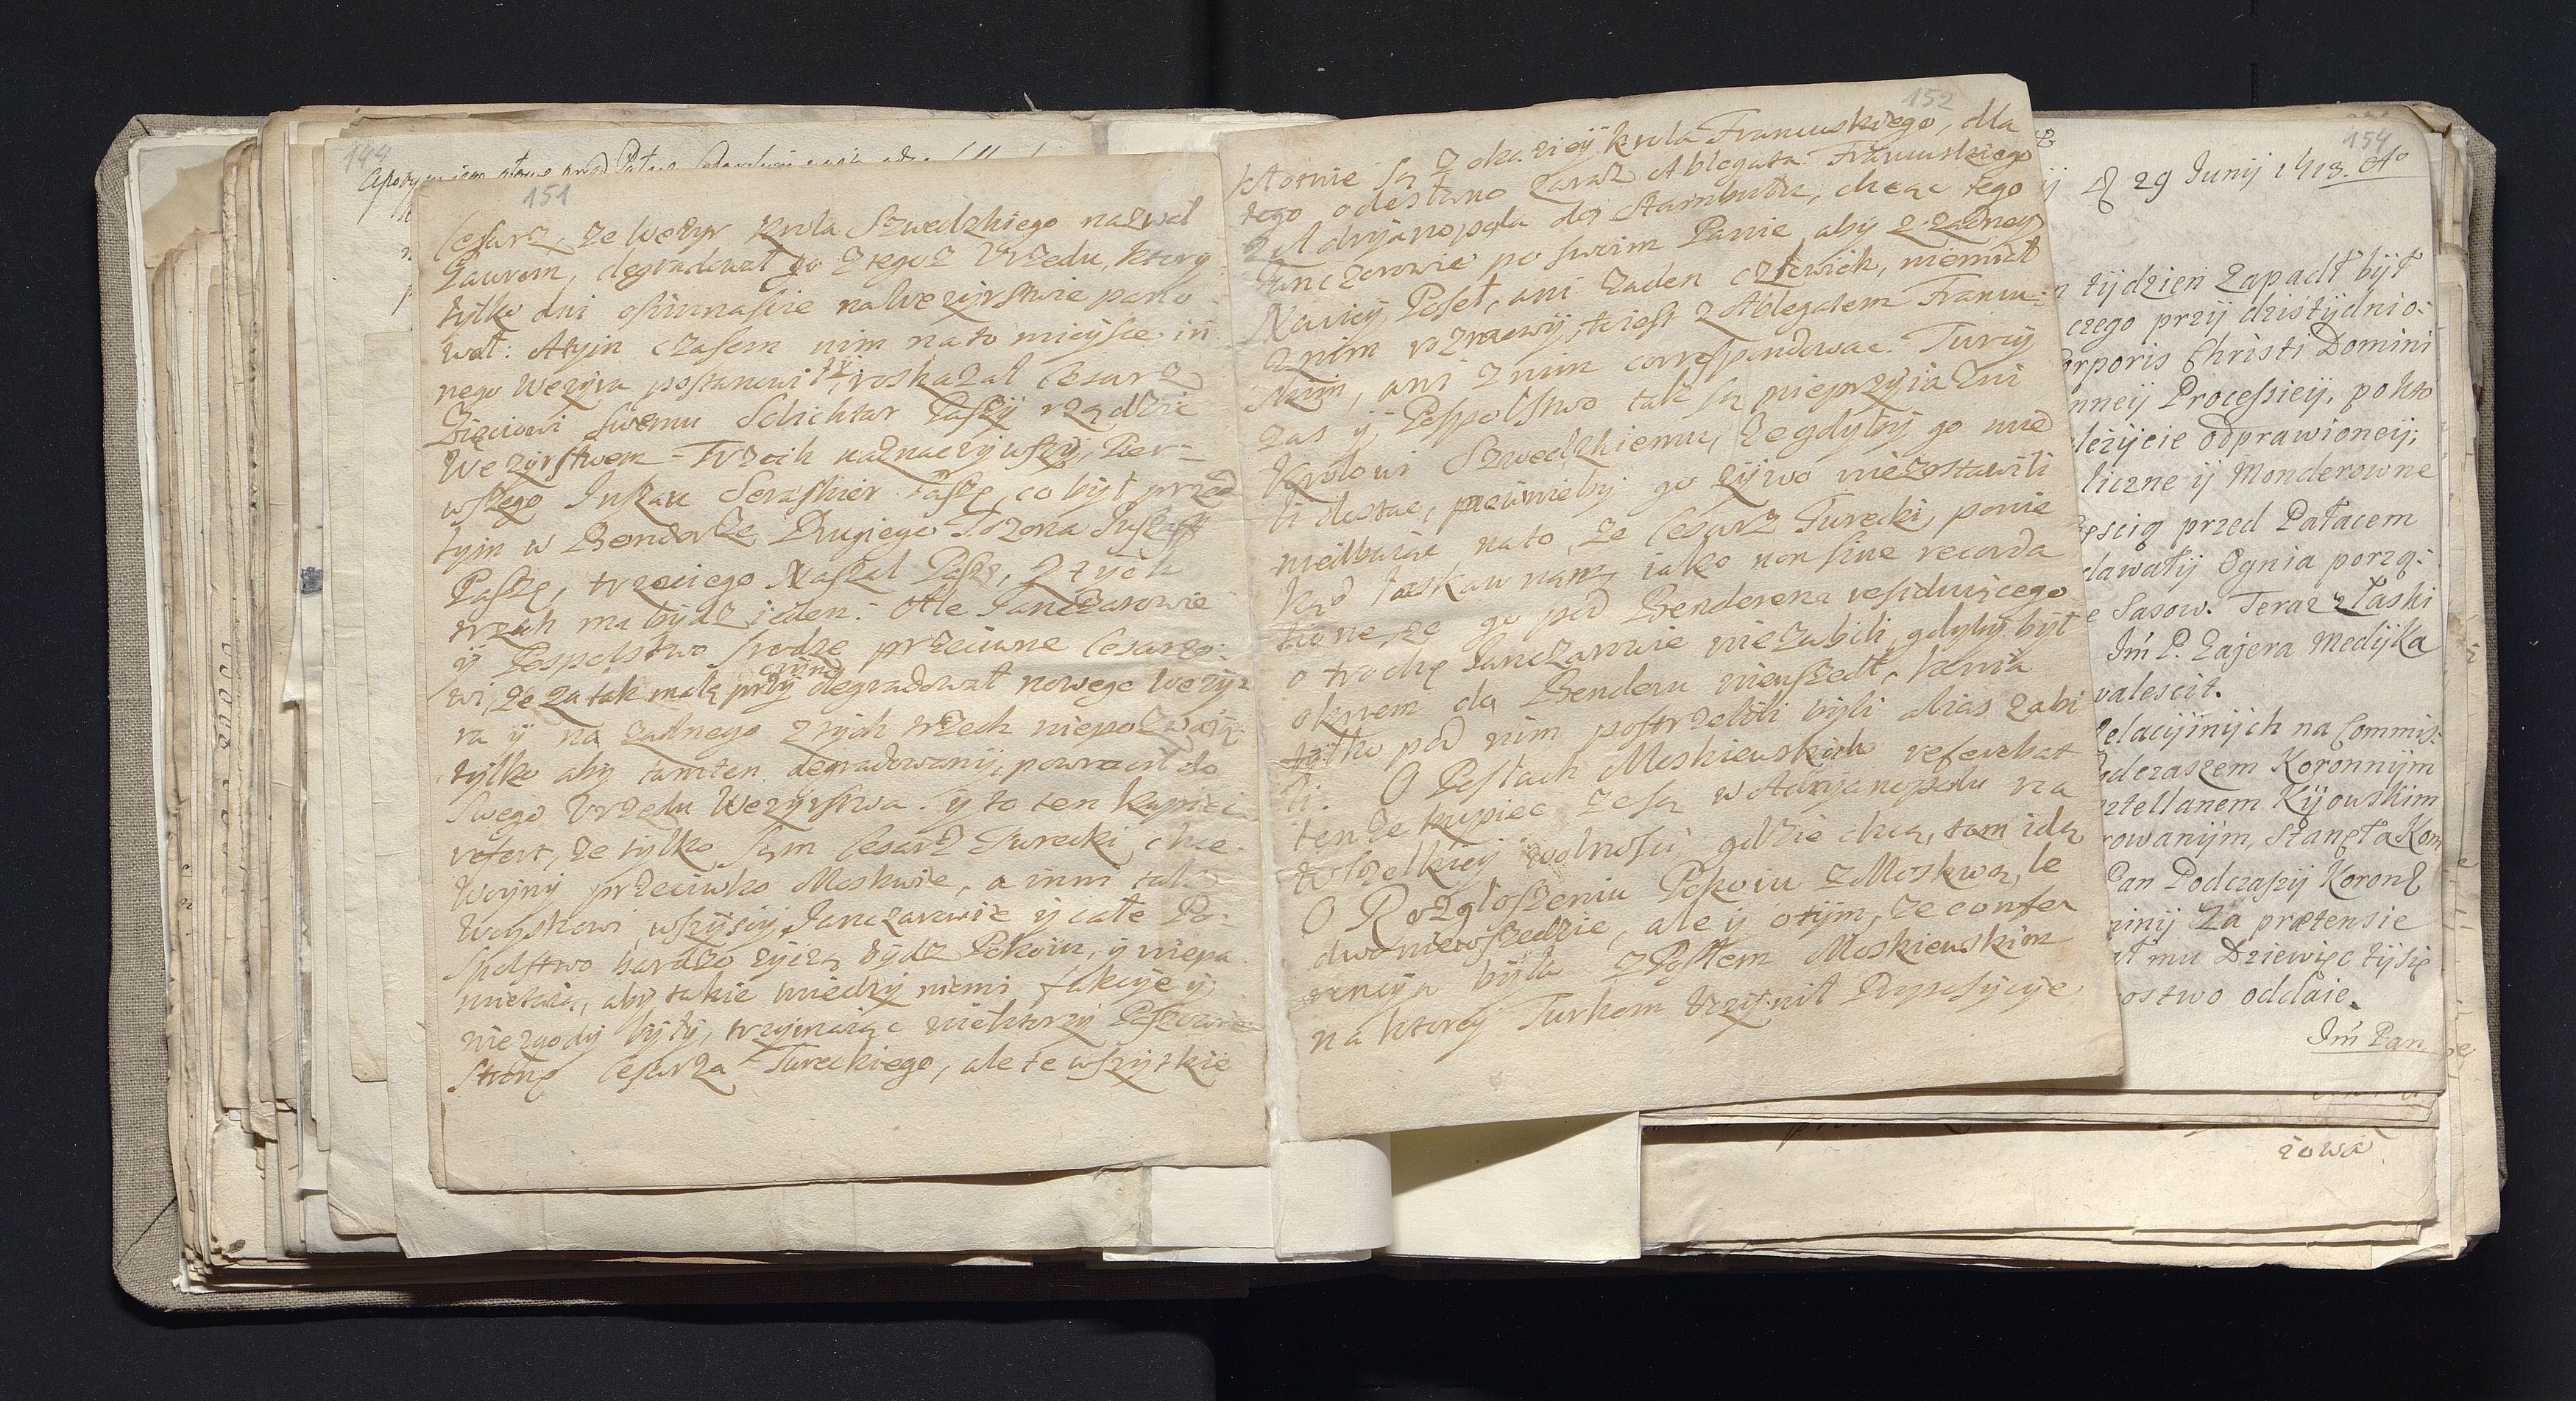 144
151
Cesarz, że Wezyr Krola Szwedzkiego nazwał
Gaurem, degradował go z tegoż Vrzędu, ktory
tylko dni ośiumnaście na Wezyrstwie pano
wał: A tym czasem nim na to mieysce in
nego Wezyra postanowił, roskazał Cesarz
Zięciowi swemu Selichtar Paszÿ rządzic
Wezyrstwem Trzech naznaczywszÿ, Pier-
wszego Seraskier Paszę, co był przed
tym w Benderze Drugiego
Paszę, trzeciego Paszę, z tÿch
trzech ma bÿdz ieden: Ale Janczarowie
ÿ Pospolstwo srodze przeciwne Cesarzo-
wi, że za tak małą przÿczÿnę degradował nowego Wezÿ-
ra ÿ na zadnego z tych trzech niepozwaią
tylko aby tamten degradowanÿ, powrocił do
Swego Vrzędu Wezÿrstwa. ÿ to ten kupiec
refert, że tylko Sam Cesarz Turecki chce
Woyny przeciwko Moskwie, a inni
Woyskowi wszyscy Janczarowie ÿ całe Po-
spolstwo bardzo zyczą bÿdz Pokoiu, ÿ
aby takie miedzÿ niemi fakcÿe ÿ
niezgody bÿłÿ, trzÿmaiąc niektorzÿ Paszowie
Stronę Cesarza Tureckiego, ale te wszÿtkie
152
kłotnie są z okaziÿ Krola Francuskiego, dla
tego odesłano zaraz Ablegata Francuskiego
z Adryanopola do Stambułu, chcąc tego
Janczarowie po swoim Panie, aby z zadney
Naciey Poseł, ani zaden człowiek, niemiał
z nim rozmowÿ, to iest z Ablegatem Francu-
skim, ani z nim correspondowac. Turcÿ
zas ÿ Pospolstwo tak są nieprzÿiazni
Krolowi Szwedzkiemu, że gdyby go mie
li dostac, pewnieby go zÿwo niezostawili
niedbaiąc na to, że Cesarz Turecki, ponie
kąd łaskaw nań, iako non sine recorda
tione, że go pod Benderem residuiącego
o trochę Janczarowie nie zabili, gdyby był
oknem do Benderu nieuszedł, konia
tÿlko pod nim postrzelili bÿli alias zabi
li. O Posłach Moskiewskich referebat
tenże kupiec że są w Adryanopolu na
wszelkiey wolności gdzie chcą, tam idą
O Rozgłoszeniu Pokoiu z Moskwą, le
dwo niewszedzie, ale ÿ o tÿm, że confe
rencÿa bÿła z Posłem Moskiewskim
na ktorey Turkom Vczÿnił Propozycÿe
154
29 Junij 1713. Ao
tÿdzień zapadł bÿł
czego przÿ dzisÿdnio-
orporis Christi Domini
nneÿ Processieÿ, po kto
leżÿcie odprawioneÿ;
liczne ÿ Monderowne
ęscią przed Pałacem
dawałÿ Ognia porzą-
e Sasow. Teraz z łaski
Jm P. Zajera Medÿka
valescit.
elacÿinÿch na Commis-
odczaszem Koronnÿm
sztellanem Kÿowskim
rowanÿm, Stanęła Kom
Pan Podczaszÿ Koronÿ
minÿ Za prætensie
ał mu Dziewięc tÿsię
rostwo oddaie.
Jm Pan
zowa